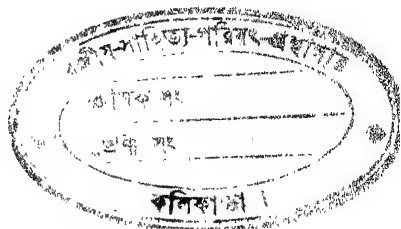 বঙ্গীয়-সাহিত্য-পরিষৎ-গ্রন্থাগার
ক্রমিক সং
গ্রন্থ সং
কলিকাতা।